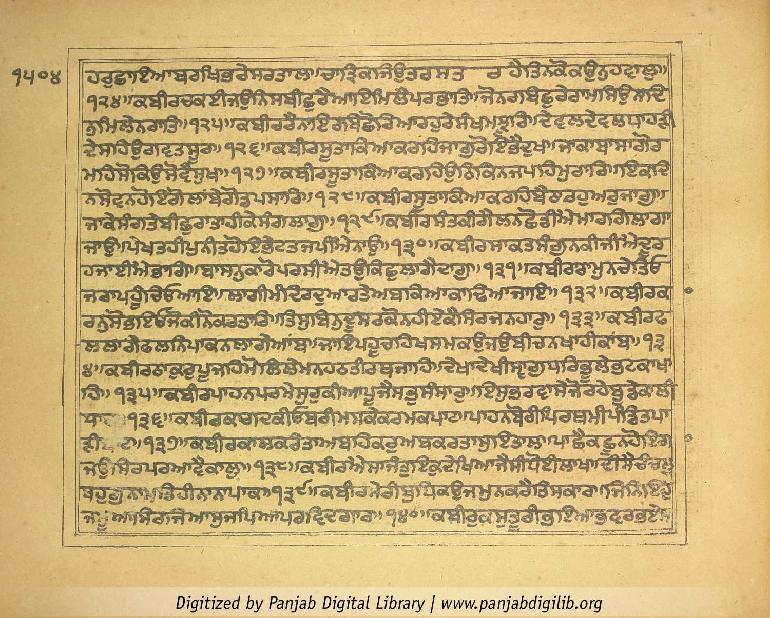 ੧੫੦੪
ਹਰੁਛਾਇਆਬਰਖਿਭਰੇਸਰਤਾਲ॥ਚਾਤ੍ਰਿਕਜਿਉਤਰਸਤ ਰ ਹੈਤਿਨਕੋਕਉਨੁਹਵਾਲੁ॥
੧੨੪॥ਕਬੀਰਚਕਈਜਉਨਿਸਿਬੀਛੁਰੈਆਇਮਿਲੈਪਰਭਾਤਿ॥ਜੋਨਰਬਿਛੁਰੇਰਾਮਸਿਉਨਾਦਿ
ਨਮਿਲੇਨਰਾਤਿ॥੧੨੫॥ਕਬੀਰਰੈਨਾਇਰਬਿਛੋਰਿਆਰਹੁਰੇਸੰਖਮਝੂਰਿ॥ਦੇਵਲਦੇਵਲਧਾਹੜੀ
ਦੇਸਹਿਉਗਵਤਸੂਰ॥੧੨੬॥ਕਬੀਰਸੂਤਾਕਿਆਕਰਹਿਜਾਗੁਰੋਇਭੈਦੁਖ॥ਜਾਕਾਬਾਸਾਗੋਰ
ਮਹਿਸੋਕਿਉਸੋਵੈਸੁਖ॥੧੨੭॥ਕਬੀਰਸੂਤਾਕਿਆਕਰਹਿਉਠਿਕਿਨਜਪਹਿਮੁਰਾਰਿ॥ਇਕਦਿ
ਨਸੋਵਨੁਹੋਇਗੋਲਾਂਬੇਗੋਡਪਸਾਰਿ॥੧੨੮॥ਕਬੀਰਸੂਤਾਕਿਆਕਰਹਿਬੈਠਾਰਹੁਅਰੁਜਾਗੁ॥
ਜਾਕੇਸੰਗਤੇਬੀਛੁਰਾਤਾਹੀਕੇਸੰਗਲਾਗੁ॥੧੨੯॥ਕਬੀਰਸੰਤਕੀਗੈਲਨਛੋਡੀਐਮਾਰਗਿਲਾਗਾ
ਜਾਉ॥ਪੇਖਤਹੀਪੁੰਨੀਤਹੋਇਭੇਟਤਜਪੀਐਨਾਉ॥੧੩੦॥ਕਬੀਰਸਾਕਤਸੰਗੁਨਕੀਜੀਐਦੂਰ
ਹਿਜਾਈਐਭਾਗਿ॥ਬਾਸਨੁਕਾਰੋਪਰਸੀਐਤਉਕਿਛੁਲਾਗੈਦਾਗੁ॥੧੩੧॥ਕਬੀਰਰਾਮੁਨਚੇਤਿਓ
ਜਰਾਪਹੂੰਚਿਓਆਇ॥ਲਾਗੀਮੰਦਿਰਦੁਆਰਤੇਅਬਕਿਆਕਾਢਿਆਜਾਇ॥੧੩੨॥ਕਬੀਰਕਾ
ਰਨੁਸੋਭਇਓਜੋਕੀਨੋਕਰਤਾਰਿ॥ਤਿਸੁਬਿਨੁਦੂਸਰਕੋਨਹੀਏਕੈਸਿਰਜਨਹਾਰੁ॥੧੩੩॥ਕਬੀਰਫ
ਲਲਾਗੇਫਲਨਿਪਾਕਨਲਾਗੇਆਂਬ॥ਜਾਇਪਹੂਚਹਿਖਸਮਕਉਜਉਬੀਚਨਖਾਹੀਕਾਂਬ॥੧੩
੪॥ਕਬੀਰਠਾਕੁਰੁਪੂਜਹਿਮੋਲਿਲੇਮਨਹਠਤੀਰਥਜਾਹਿ॥ਦੇਖਾਦੇਖੀਸ੍ਵਾਂਗੁਧਰਿਭੂਲੇਭਟਕਾਖਾ
ਹਿ॥੧੩੫॥ਕਬੀਰਪਾਹਨੁਪਰਮੇਸੁਰੁਕੀਆਪੂਜੈਸਭੁਸੰਸਾਰੁ॥ਇਸਭਰਵਾਸੇਜੋਰਹੇਬੂਡੇਕਾਲੀ
ਧਾਰ॥੧੩੬॥ਕਬੀਰਕਾਗਦਕੀਓਬਰੀਮਸੁਕੇਕਰਮਕਪਾਟ॥ਪਾਹਨਬੋਰੀਪਿਰਥਮੀਪੰਡਿਤਪਾ
ੜੀਬਾਟ॥੧੩੭॥ਕਬੀਰਕਾਲਕਰੰਤਾਅਬਹਿਕਰੁਅਬਕਰਤਾਸੁਇਤਾਲ॥ਪਾਛੈਕਛੂਨਹੋਇਗਾ
ਜਉਸਿਰਪਰਆਵੈਕਾਲੁ॥੧੩੮॥ਕਬੀਰਐਸਾਜੰਤੁਇਕੁਦੇਖਿਆਜੈਸੀਧੋਈਲਾਖ॥ਦੀਸੈਚੰਚਲੁ
ਬਹੁਗੁਨਾਮਤਿਹੀਨਾਨਾਪਾਕ॥੧੩੯॥ਕਬੀਰਮੇਰੀਬੁਧਿਕਉਜਮੁਨਕਰੈਤਿਸਕਾਰ॥ਜਿਨਿਇਹੁ
ਜਮੂਆਸਿਰਜਿਆਸੁਜਪਿਆਪਰਵਿਦਗਾਰ॥੧੪੦॥ਕਬੀਰੁਕਸਤੂਰੀਭਇਆਭਵਰਭਏਸ
Digitized by Panjab Digital Library | www.panjabdigilib.org